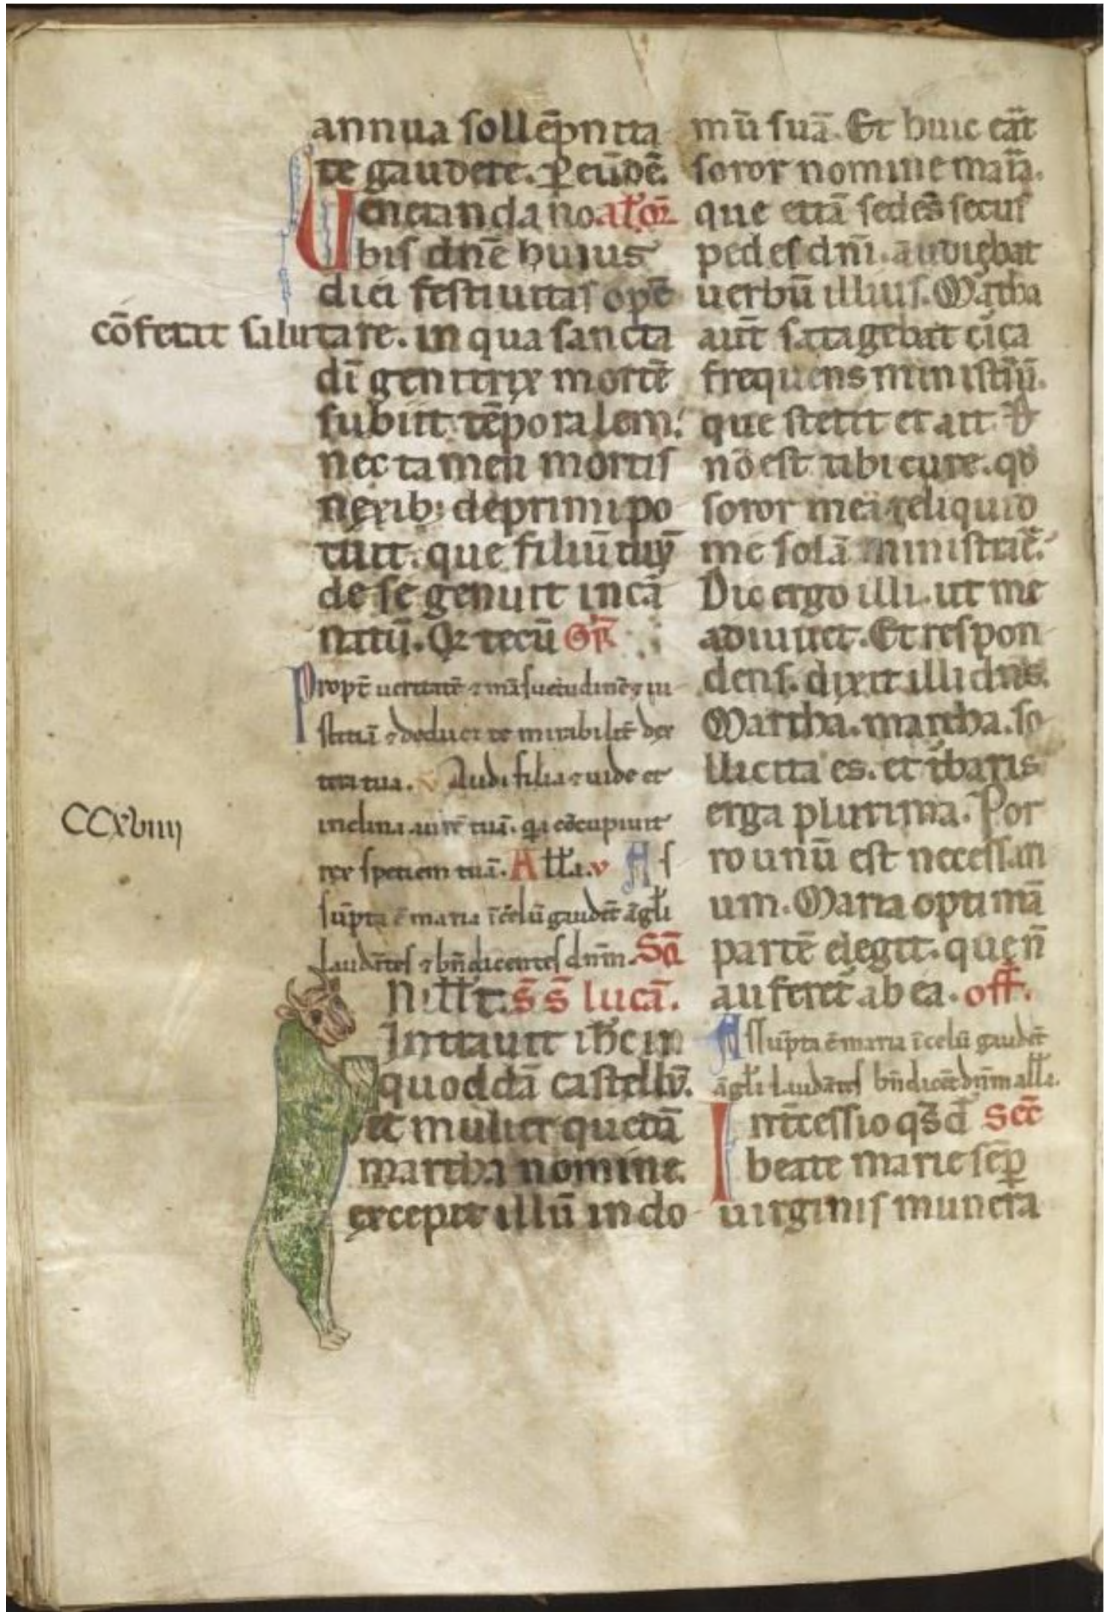 annua sollēpnita
te gaudere. Per eūdē.
Ueneranda no al' or̄
bis dn̄e huius
diei festiuitas opē
cōferat salutare. in qua sancta
dī genitrix mortē
subiit tēporalem.
nec tamen mortis
nexib; deprimi po
tuit. que filiū tuū
de se genuit incā
natū. Q tecū Gr̄
Propt̄ ueritatē ⁊ māsuetudinē ⁊ iu
sticiā ⁊ deducet te mirabilit̄ dex
tera tua. v Audi filia ⁊ uide et
inclina aurē tuā. qa cōcupiuit
CCXviiij
rex speciem tuā. All'a. v As
sūpta ē maria ī celū gaudēt āgl'i
laudātes ⁊ bn̄dicentes dn̄m. Sc̄d
N ill' t. s̄ s̄ lucā.
Intrauit ih̄c in
quoddā castellū.
et mulier quedā
martha nomine.
excepit illū in do
mū suā. Et huic erāt
soror nomine maria.
que etiā sedēs secus
pedes dn̄i. audiebat
uerbū illius. Martha
aūt satagebat circa
frequens ministriū.
que stetit et ait. D̄
nō est tibi cure. qd̄
soror mea reliquid
me solā ministrare.
Dic ergo illi. ut me
adiuuet. Et respon
dens. dixit illi dn̄s.
Martha. martha. so
llicita es. et turbaris
erga plurima. Por
ro unū est necessari
um. Maria optimā
partē elegit. que n̄
auferet̄ ab ea. off̄.
Assūpta ē maria ī celū gaudēt
āgl'i laudātes bn̄dicēt dn̄m all'a.
Int̄cessio qs̄ d̄ Sec̄
beate marie semp̄
uirginis munera